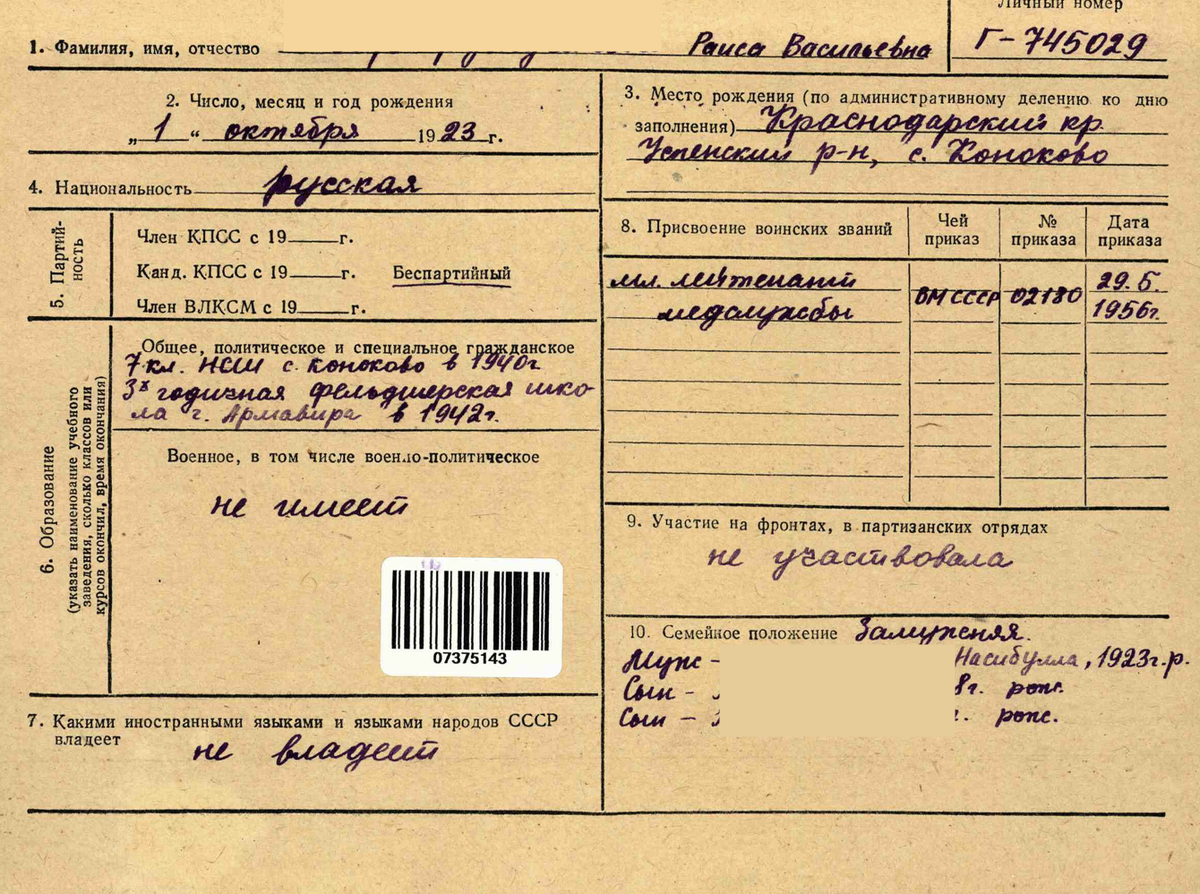 Личный номер
1. Фамилия, имя, отчество Раиса Васильевна Г-745029
2. Число, месяц и год рождения
„ 1 “ октября 1923 г.
3. Место рождения (по административному делению ко дню
заполнения) Краснодарский кр.
Успенский р-н, с. Коноково
4. Национальность русская
5. Партий-
ность
Член КПСС с 19 г.
Канд. КПСС с 19 г. Беспартийный
Член ВЛКСМ с 19 г.
8. Присвоение воинских званий
Чей
приказ
№
приказа
Дата
приказа
мл. лейтенант
медслужбы
ВМ СССР 02180
29. 5.
1956г.
6. Образование
(указать наименование учебного
заведения, сколько классов или
курсов окончил, время окончания)
Общее, политическое и специальное гражданское
7 кл. НСШ с. Коноково в 1940г
3х годичная фельдшерская шко-
ла г. Армавира в 1942г.
Военное, в том числе военно-политическое
не имеет
07375143
9. Участие на фронтах, в партизанских отрядах
не участвовала
10. Семейное положение Замужняя.
Муж - Насибулла, 1923г.р.
Сын - 8г. рож.
Сын - г. рож.
7. Какими иностранными языками и языками народов СССР
владеет не владеет